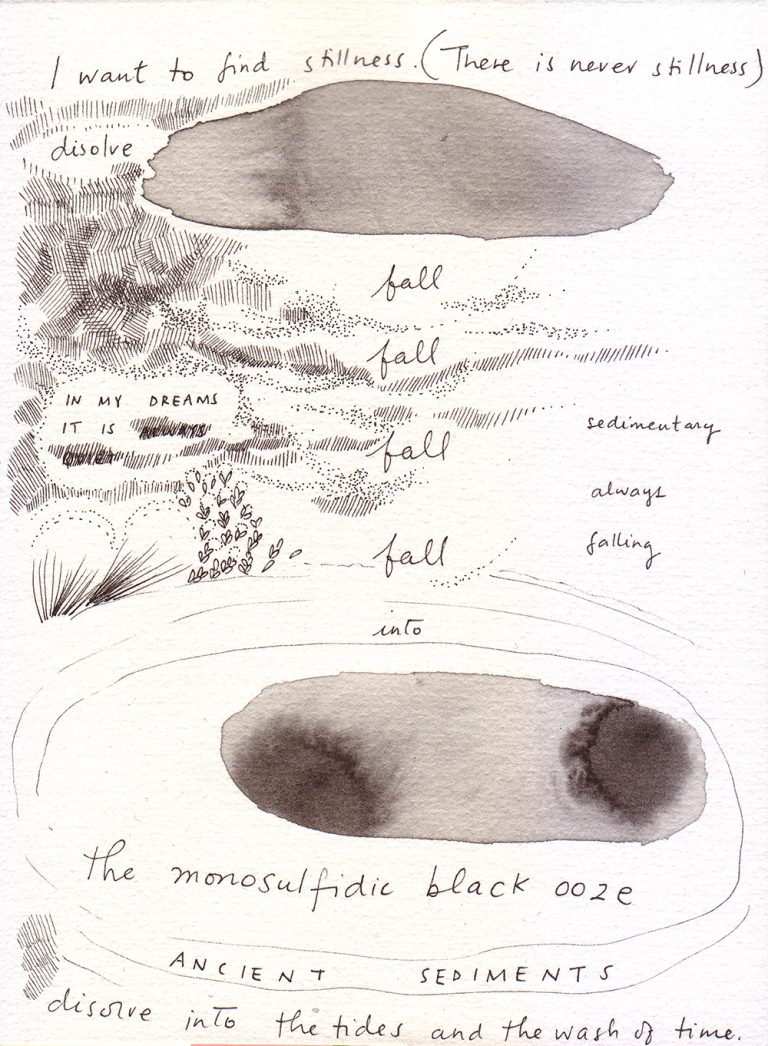 I want to find stillness. (There is never stillness)
disolve
fall
fall
IN MY DREAMS
IT IS ALWAYS
QUIET
fall
sedimentary
always
falling
fall
into
the monosulfidic black ooze
ANCIENT SEDIMENTS
disolve into the tides and the wash of time.